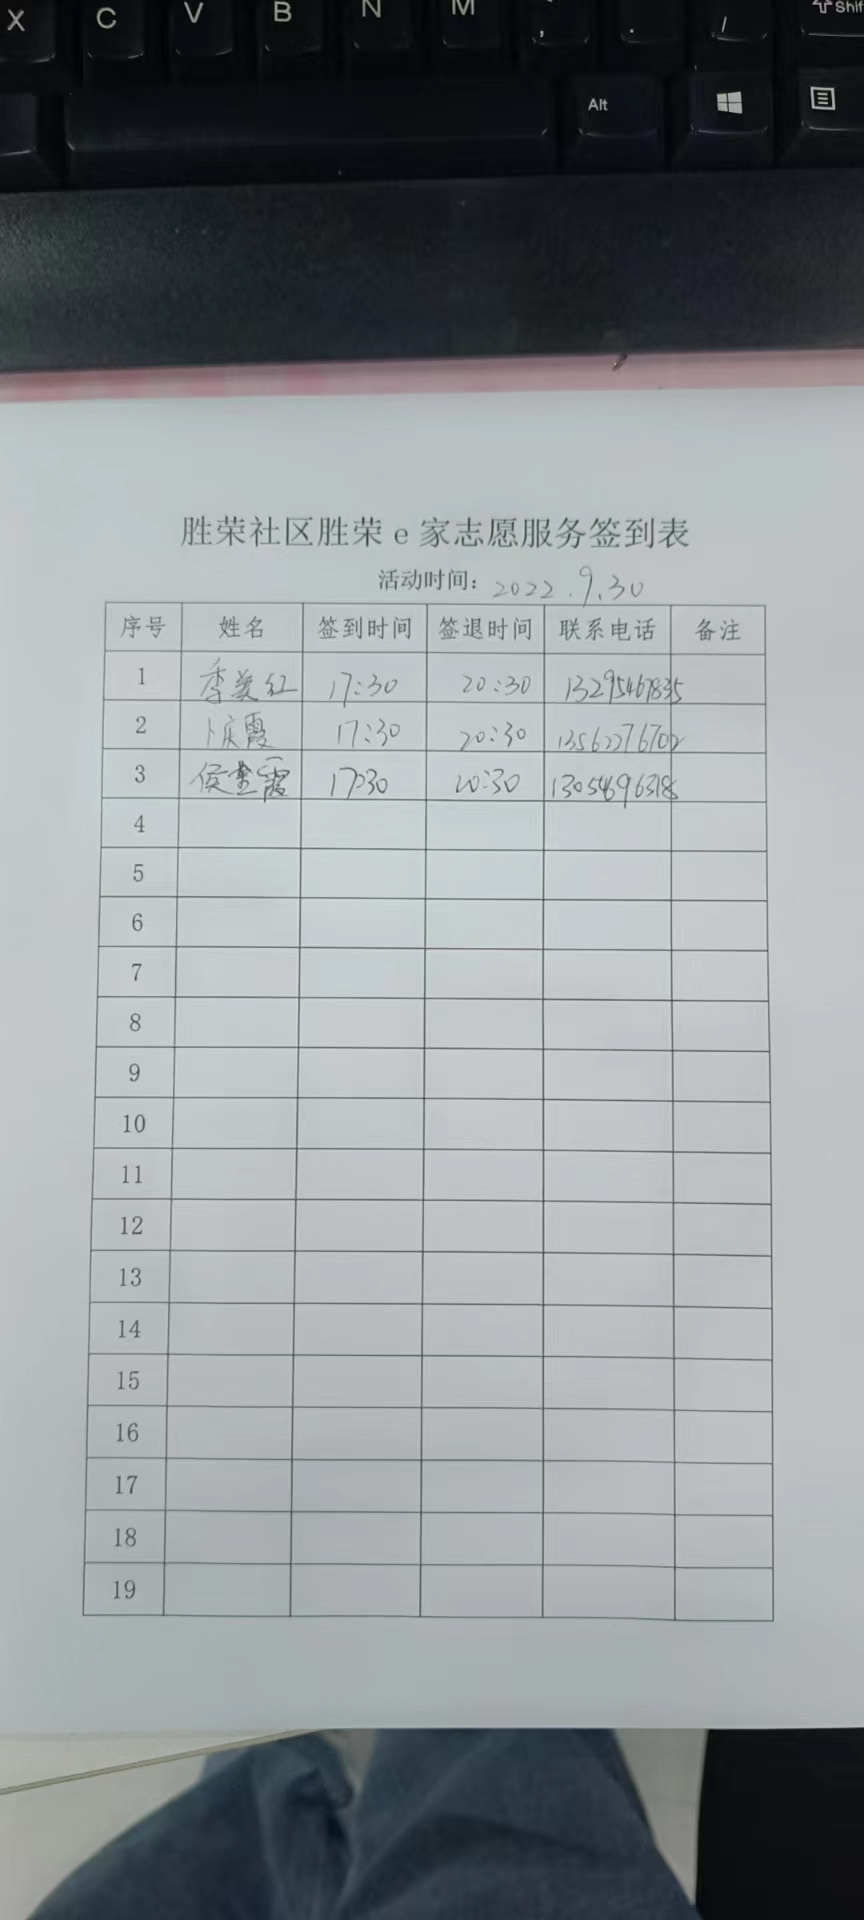 X C V B N M , . / Shif
Alt
胜荣社区胜荣e家志愿服务签到表
活动时间：2022.9.30
序号 姓名 签到时间 签退时间 联系电话 备注
1 季美红 17:30 20:30 13295467835
2 卜庆霞 17:30 20:30 13562276702
3 侯 霞 17:30 20:30 13054696318
4
5
6
7
8
9
10
11
12
13
14
15
16
17
18
19